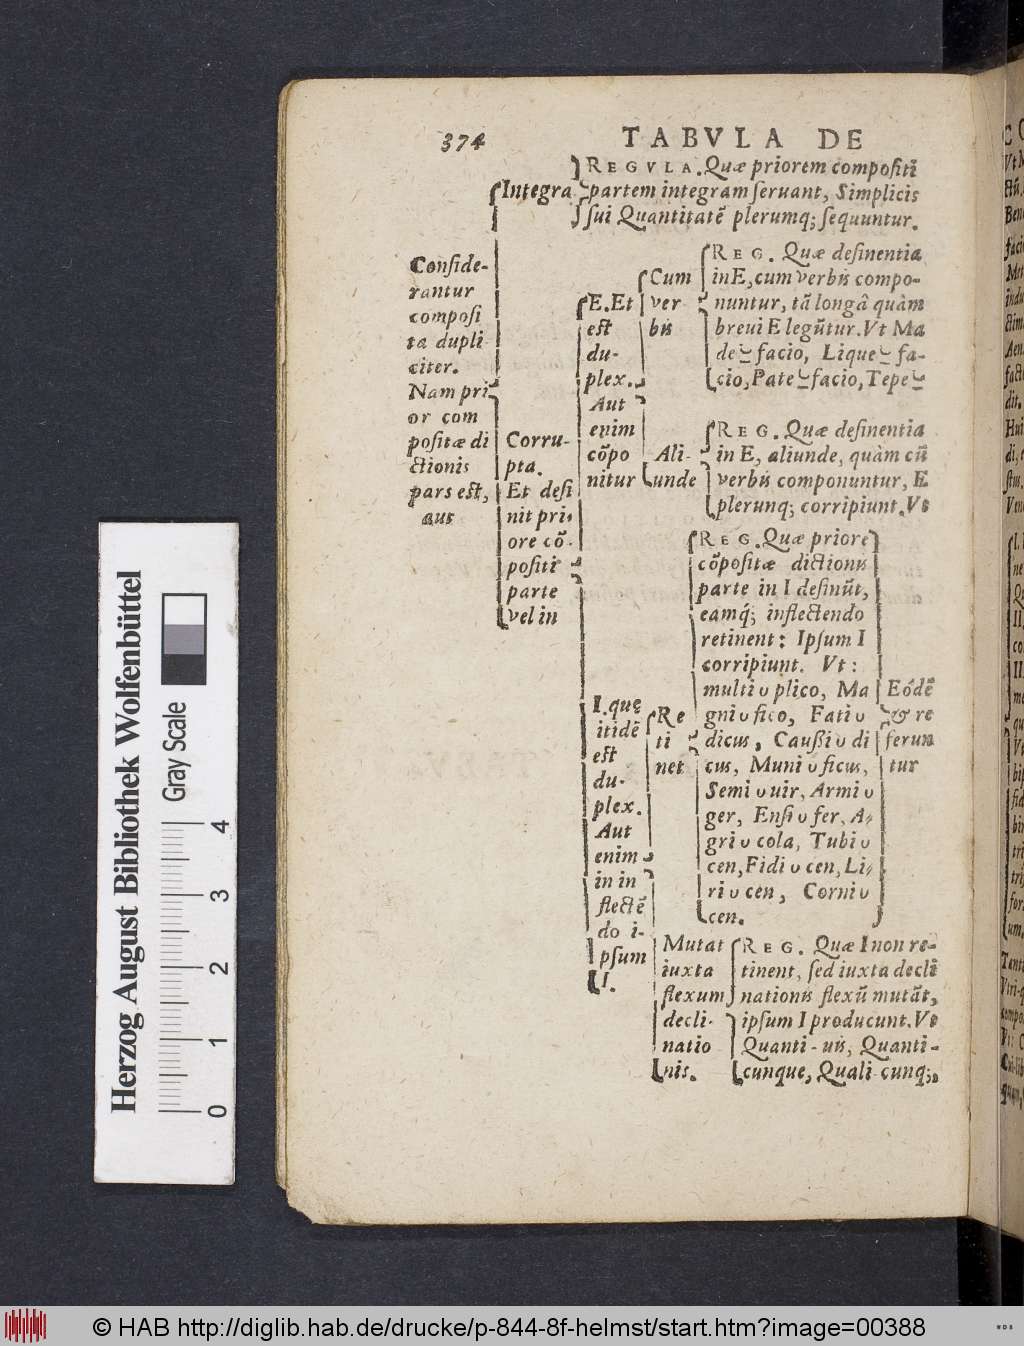 374
TABVLA DE
Conside-
rantur
composi
ta dupli
citer.
Nam pri
or com
positæ di
ctionis
pars est,
aut
Integra
REGVLA. Quæ priorem compositi
partem integram seruant, Simplicis
sui Quantitatē plerumq; sequuntur.
Corru-
pta.
Et desi
nit pri-
ore cō-
positi
parte
vel in
E. Et
est
du-
plex.
Aut
enim
cōpo
nitur
Cum
ver-
bis
REG. Quæ desinentia
in E, cum verbis compo-
nuntur, tā longâ quàm
breui E legūtur. Vt Ma
de⏓facio, Lique⏓fa-
cio, Pate⏓facio, Tepe⏓
Ali-
unde
REG. Quæ desinentia
in E, aliunde, quàm cū
verbis componuntur, E
plerunq; corripiunt. Vt
I. quę
itidē
est
du-
plex.
Aut
enim
in in
flectē
do i-
psum
I.
Re
ti
net
REG. Quæ priore
cōpositæ dictionis
parte in I desinūt,
eamq́; inflectendo
retinent: Ipsum I
corripiunt. Vt:
multi ᴗ plico, Ma
gni ᴗ fico, Fati ᴗ
dicus, Caußi ᴗ di
cus, Muni ᴗ ficus,
Semi ᴗ uir, Armi ᴗ
ger, Ensi ᴗ fer, A-
gri ᴗ cola, Tubi ᴗ
cen, Fidi ᴗ cen, Li-
ri ᴗ cen, Corni ᴗ
cen.
Eódē
& re
ferun
tur
Mutat
iuxta
flexum
decli-
natio
nis.
REG. Quæ I non re-
tinent, sed iuxta decli
nationis flexū mutāt,
ipsum I producunt. Vt
Quanti-uis, Quanti-
cunque, Quali-cunq;,
Herzog August Bibliothek Wolfenbüttel
Gray Scale
0 1 2 3 4
© HAB http://diglib.hab.de/drucke/p-844-8f-helmst/start.htm?image=00388